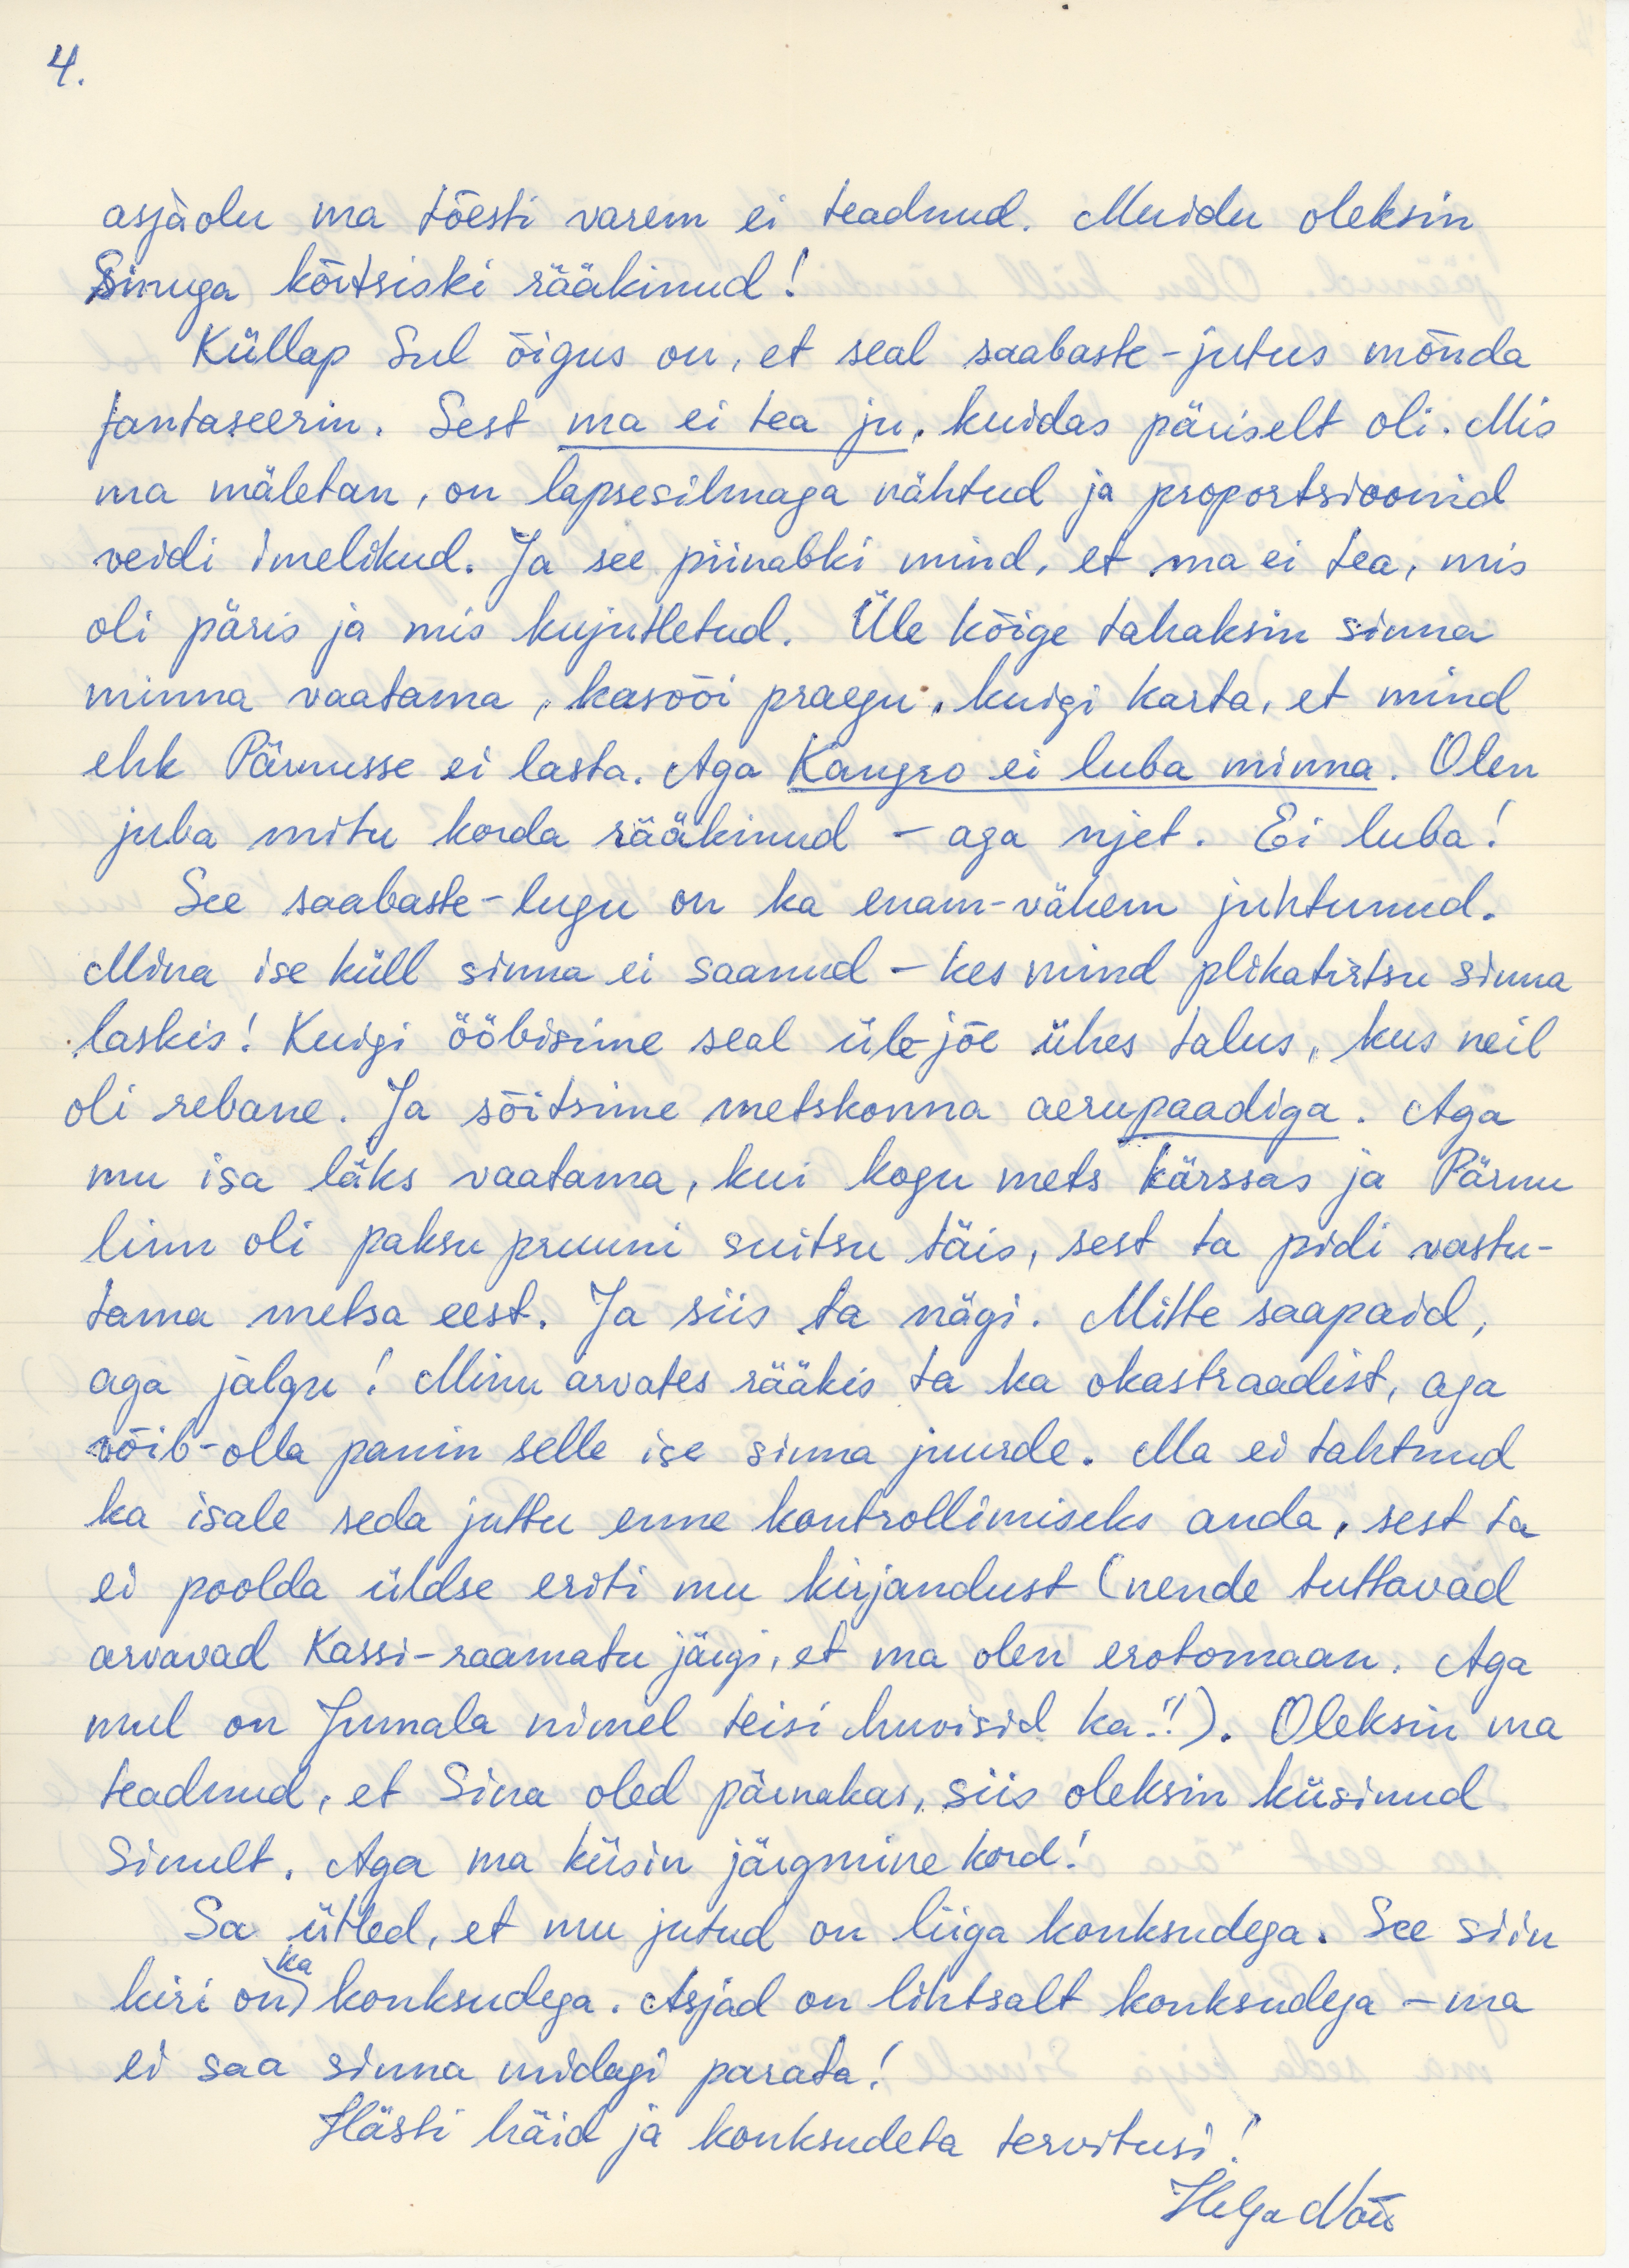 4.
asjaolu ma tõesti varem ei teadnud. Muidu oleksin
Sinuga kõitsiski rääkinud!
Küllap Sul õigus on, et seal saabaste-jutus mõnda
fantaseerin. Sest ma ei tea ju, kuidas päriselt oli. Mis
ma mäletan, on lapsesilmaga nähtud ja proportsioonid
veidi imelikud. Ja see piinabki mind, et ma ei tea, mis
oli päris ja mis kujutletud. Üle kõige tahaksin sinna
minna vaatama, kasvõi praegu, kuigi karta, et mind
ehk Pärnusse ei lasta. Aga Kangro ei luba minna. Olen
juba mitu korda rääkinud - aga njet. Ei luba!
See saabaste-lugu on ka enam-vähem juhtunud.
Mina ise küll sinna ei saanud - kes mind plikatirtsu sinna
laskis! Kuigi ööbisime seal üle jõe ühes talus, kus neil
oli rebane. Ja sõitsime metskonna aerupaadiga. Aga
mu isa läks vaatama, kui kogu mets kärssas ja Pärnu
linn oli paksu pruuni suitsu täis, sest ta pidi vastu-
tama metsa eest. Ja siis ta nägi. Mitte saapaid,
aga jalgu! Minu arvates rääkis ta ka okastraadist, aga
võib-olla panin selle ise sinna juurde. Ma ei tahtnud
ka isale seda juttu enne kontrollimiseks anda, sest ta
ei poolda üldse eriti mu kirjandust (nende tuttavad
arvavad Kassi-raamatu järgi, et ma olen erotomaan. Aga
mul on Jumala nimel teisi huvisid ka!!). Oleksin ma
teadnud, et Sina oled pärnakas, siis oleksin küsinud
Sinult. Aga ma küsin järgmine kord!
Sa ütled, et mu jutud on liiga konksudega. See siin
kiri on ka konksudega. Asjad on lihtsalt konksudega - ma
ei saa sinna midagi parata!
Hästi häid ja konksudeta tervitusi!
Helga Nõu